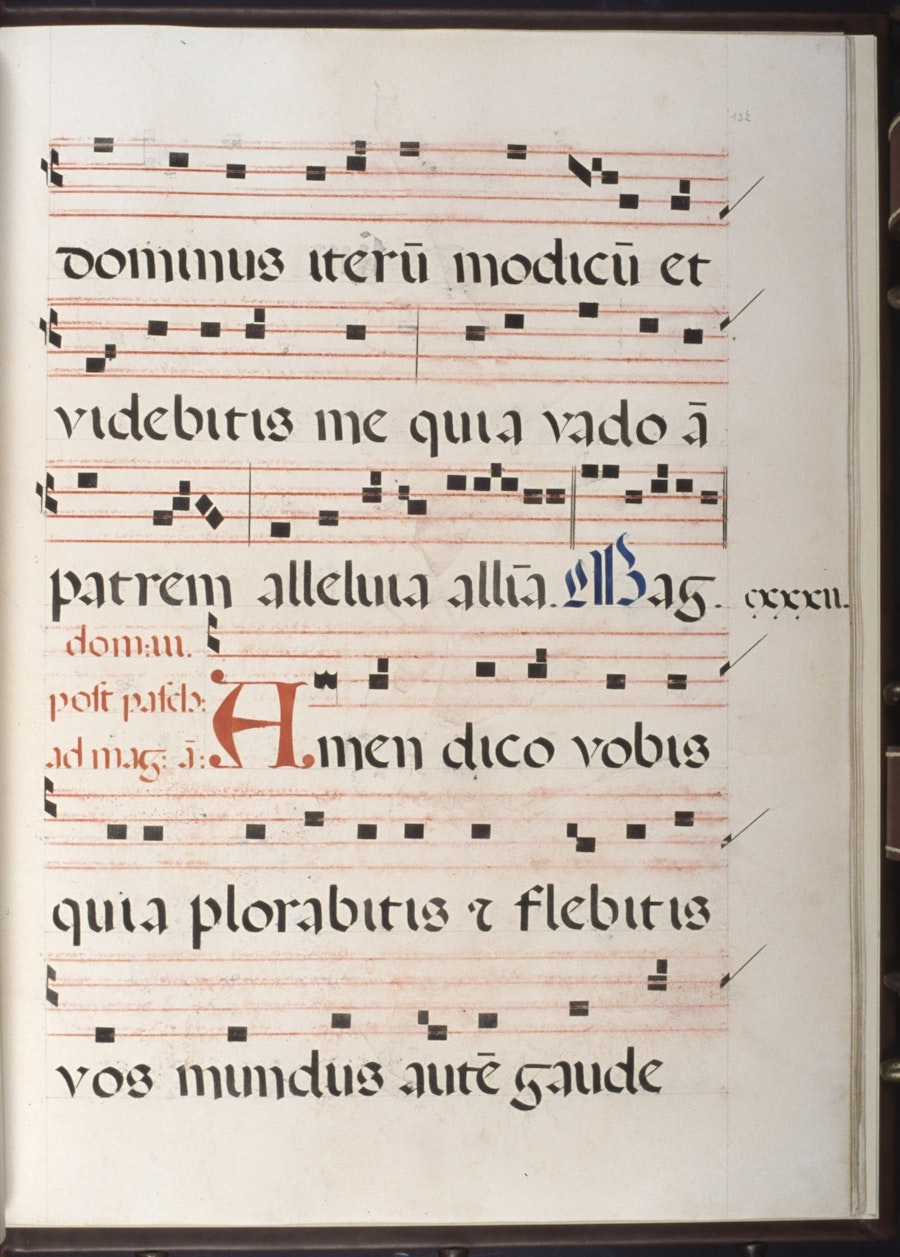 132
dominus iterū modicū et
videbitis me quia vado ā
patrem alleluia allīa. Mag. cxxxii.
dom: iii.
post pasch:
ad mag: ā:
Amen dico vobis
quia plorabitis ⁊ flebitis
vos mundus autē gaude